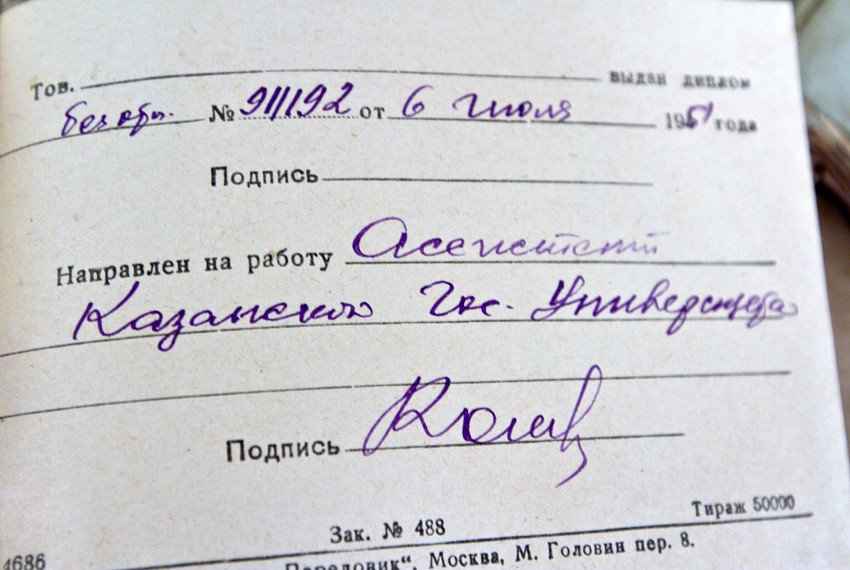 Тов. выдан диплом
без отл. № 911192 от 6 июля 1951 года
Подпись
Направлен на работу Ассистент
Казанского Гос. Университета
Подпись
Зак. № 488 Тираж 50000
4686
Передовик“, Москва, М. Головин пер. 8.